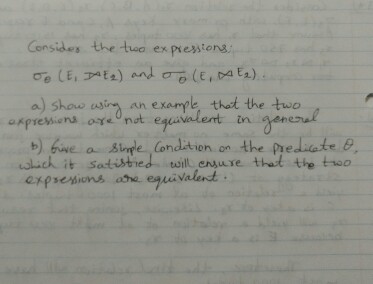 Consider the two expressions:
σθ (E₁ ⋈ E₂) and σθ (E₁ ⋈ E₂).
a) Show using an example that the two
expressions are not equivalent in general
b) Give a simple condition on the predicate θ,
which if satisfied will ensure that the two
expressions are equivalent.